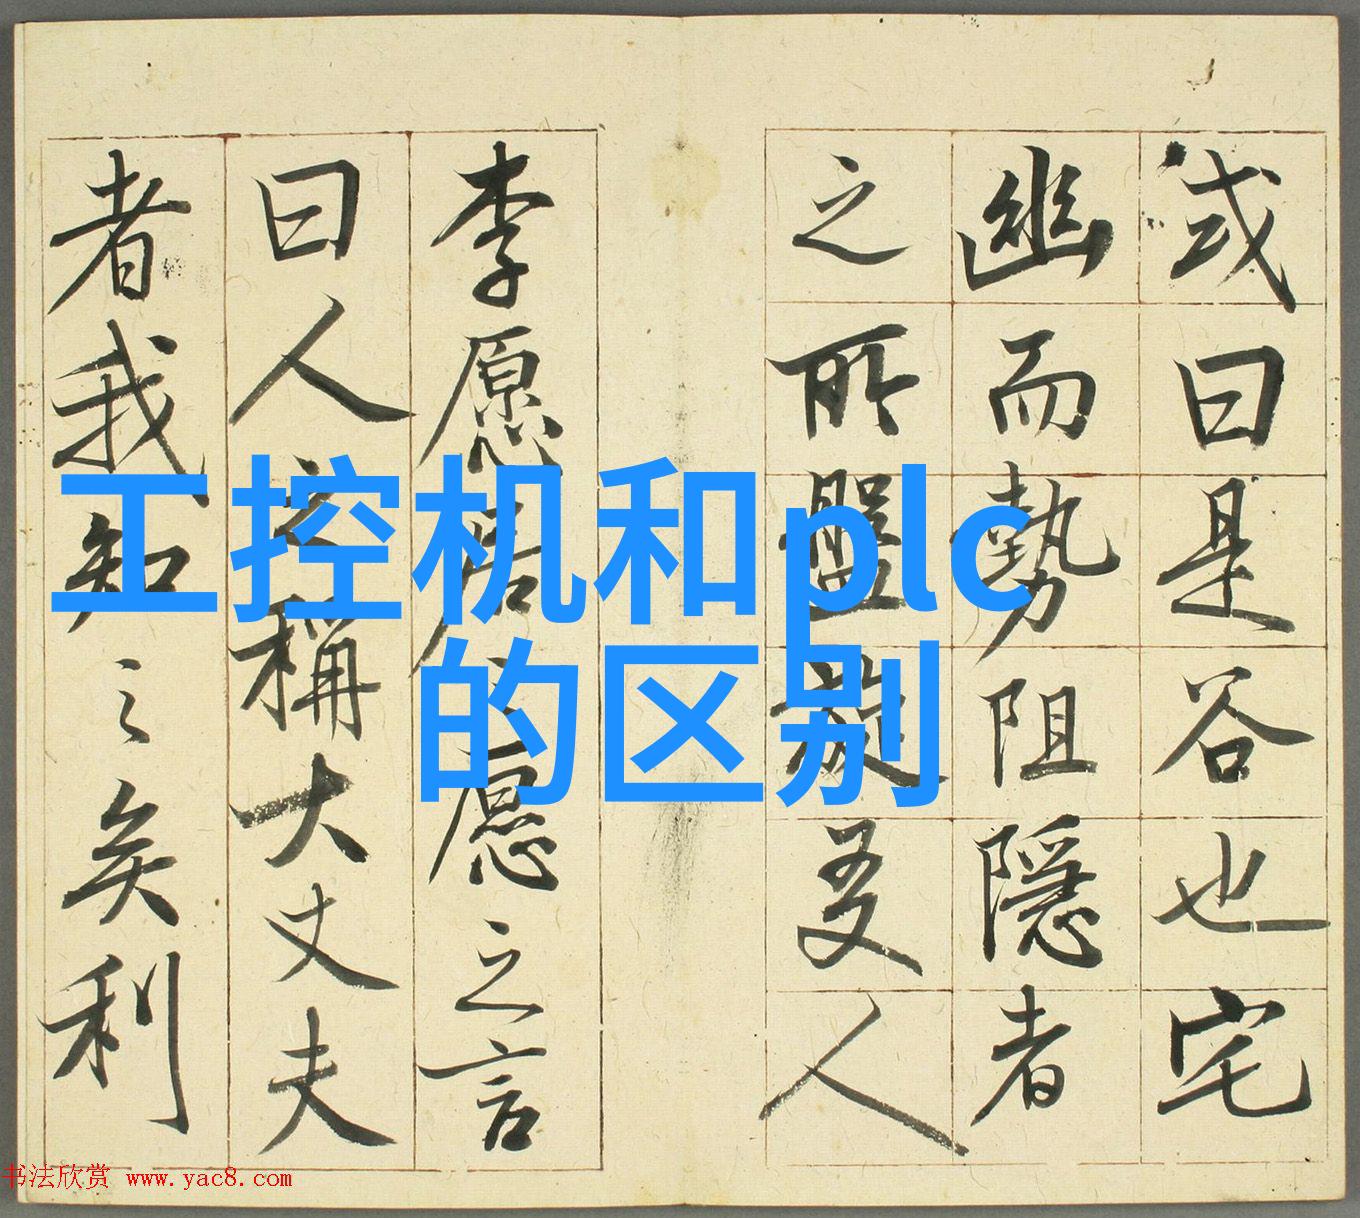 或曰是谷也宅
幽而勢阻隱者
之所盤旋友人
李愿居之愿之言
曰人之稱大丈夫
者我知之矣利
工控机和plc
的区别
书法欣赏 www.yac8.com